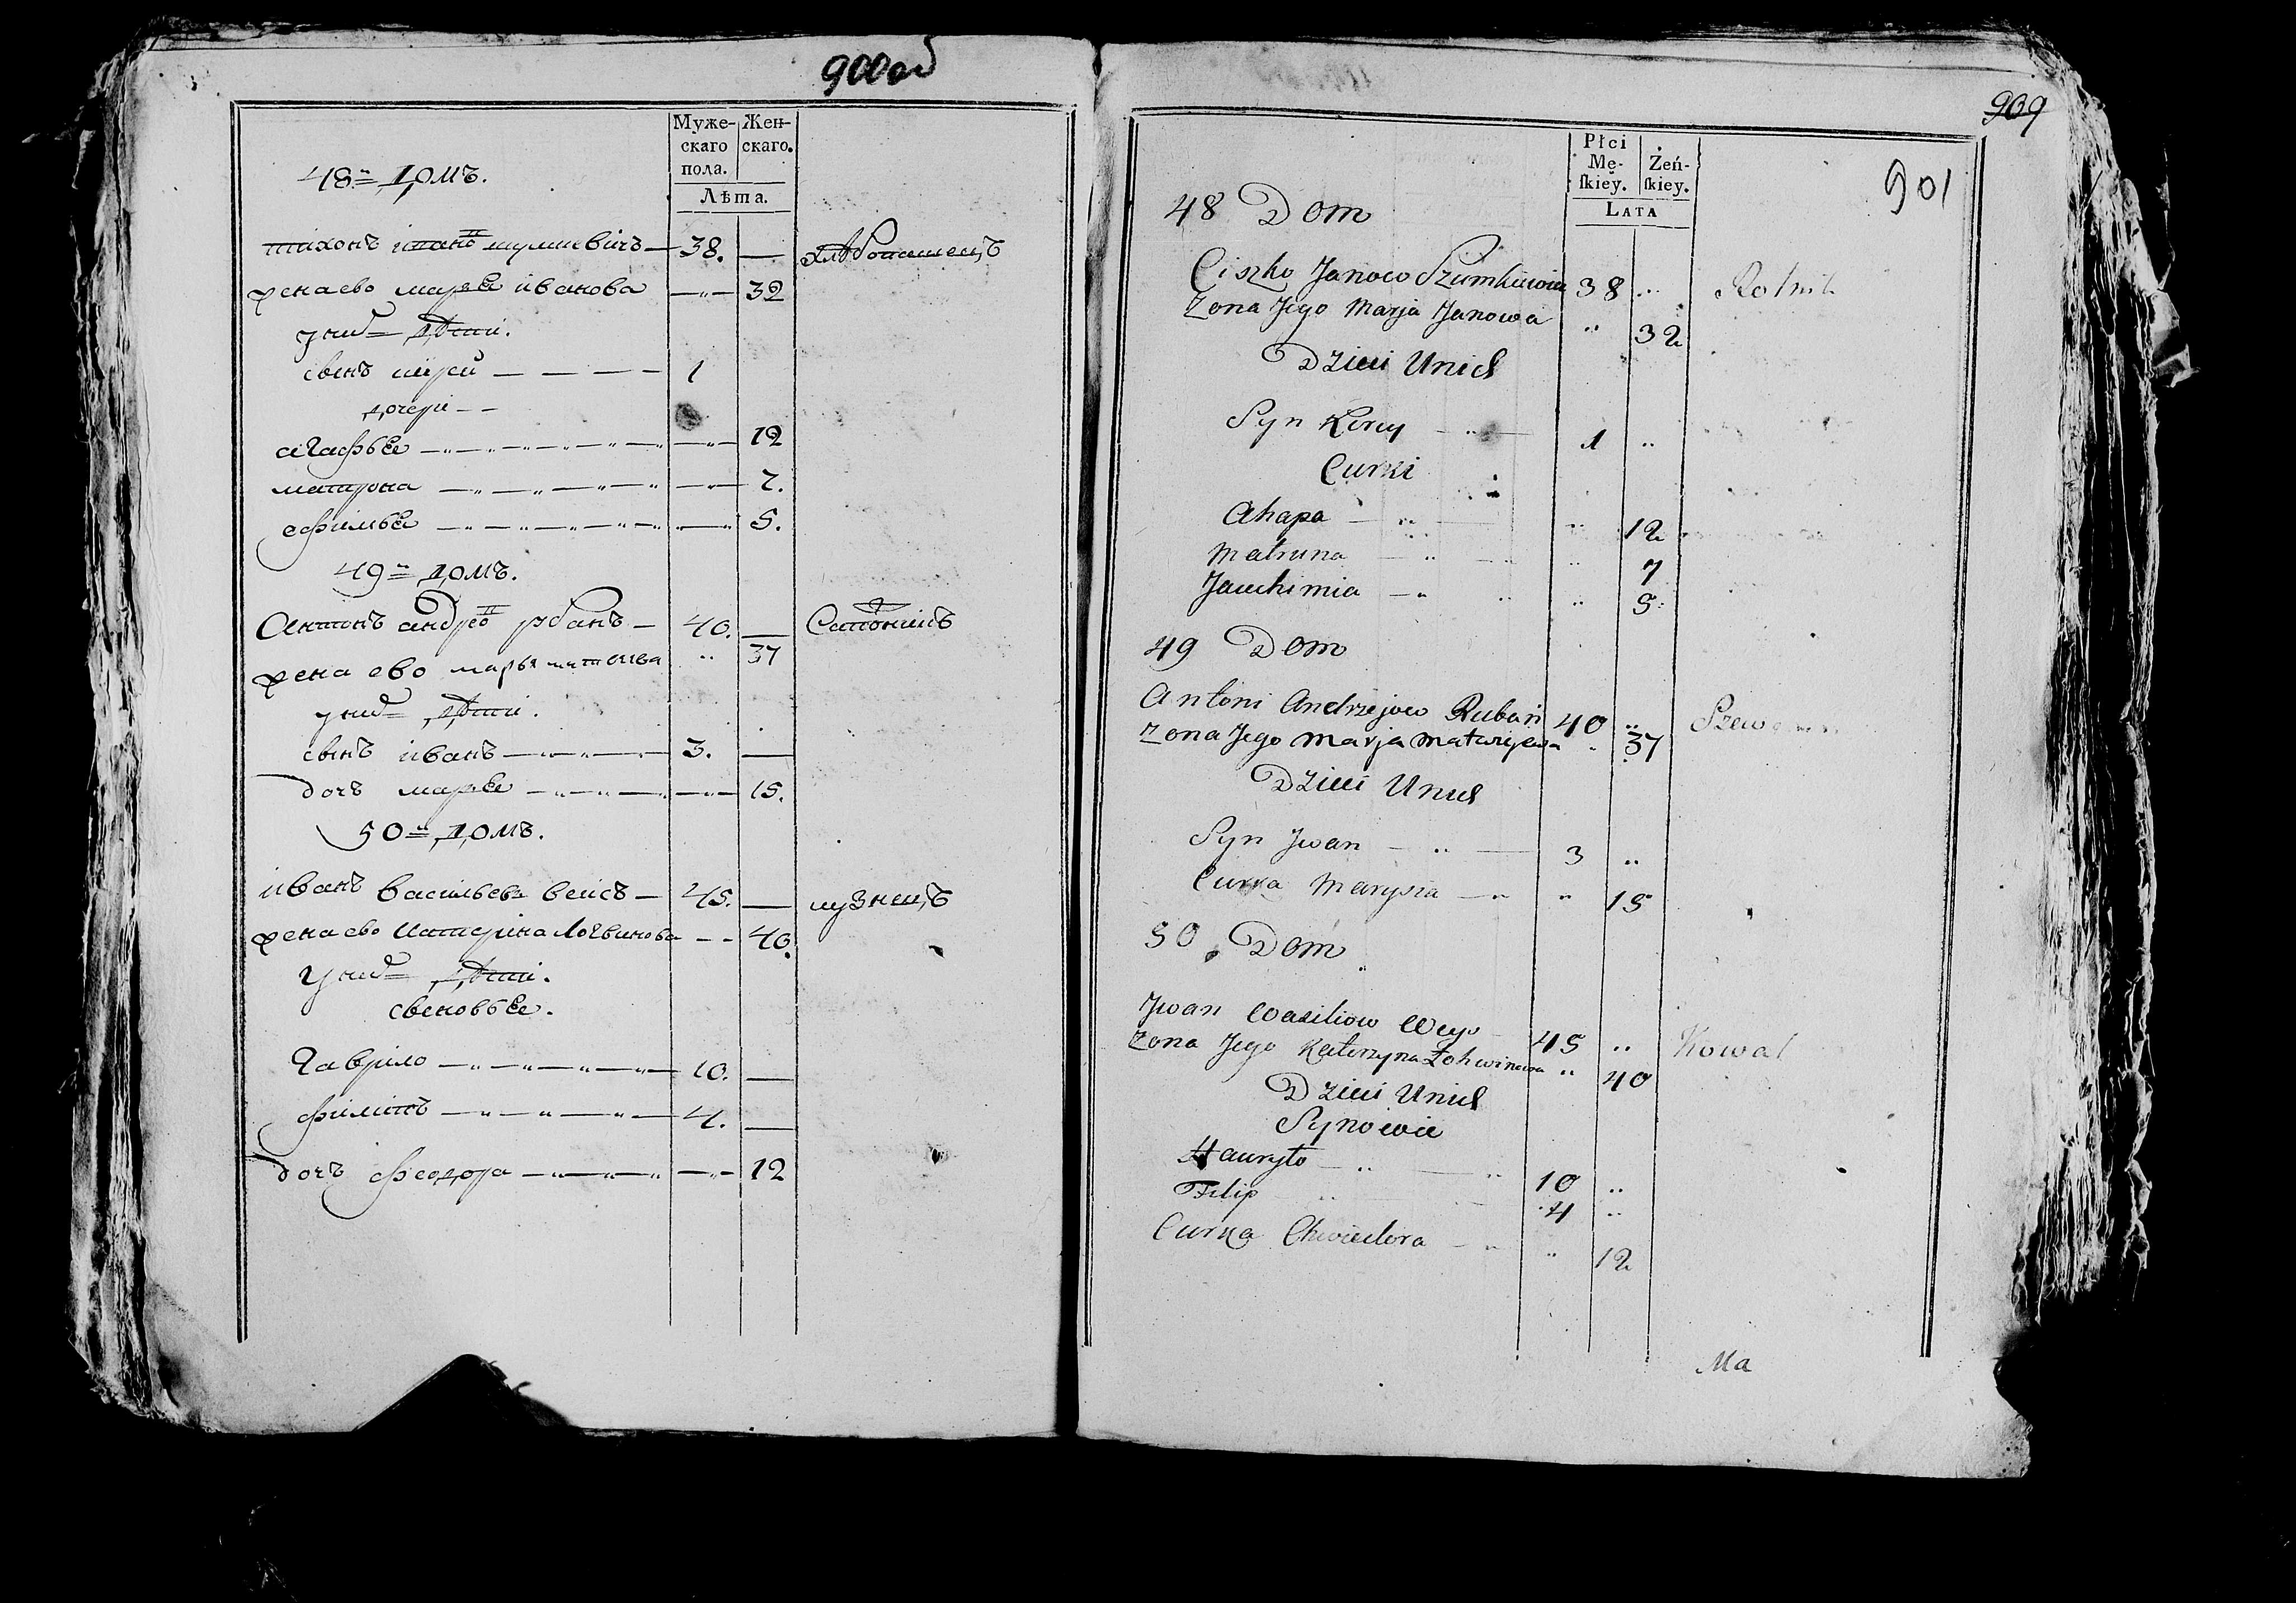 900 об
Муже-
скаго
пола.
Жен-
скаго.
Лѣта.
48й Домъ.
тихонъ ивановъ шумкевичъ — 38. — хлѣбопашецъ
жена ево марья иванова — 32
у них дѣти.
сынъ — — — — 1
дочери — —
агафья — 12
матрона — 7.
ефимья — 5.
49й Домъ.
Антонъ андреевъ рубанъ — 40. — Сапожникъ
жена ево марья матвеева " 37
у них дѣти.
сынъ иванъ — 3. —
дочь марья — 15.
50й Домъ.
иванъ васильевъ веисъ — 45. — кузнецъ
жена ево катерина логвинова — 40
у них дѣти.
сыновья.
гаврило — 10. —
филипъ — 4. —
дочь феодора — 12
909
901
Płci
Mę-
ſkiey.
Żeń-
ſkiey.
LATA
48 Dom
Ciszko Janow Szumkiewicz 38 " Rolnik
Zona Jego Marja Janowa " 32
Dzieci Unich
Syn 1 "
Curki
Ahapa — " 12
Matruna — " 7
Jauchimia — " 5
49 Dom
Antoni Andrzejow Ruban 40 "
Zona Jego Marja Matwiejewa " 37
Dzieci Unich
Syn Jwan — 3 "
Curka Marysia — " 15
50 Dom
Jwan Wasiliow Weys 45 " Kowal
Zona Jego Katerzyna Łohwinowa " 40
Dzieci Unich
Synowie
Hauryło — 10 "
Filip 4 "
Curka Chwiedora — " 12
Ma